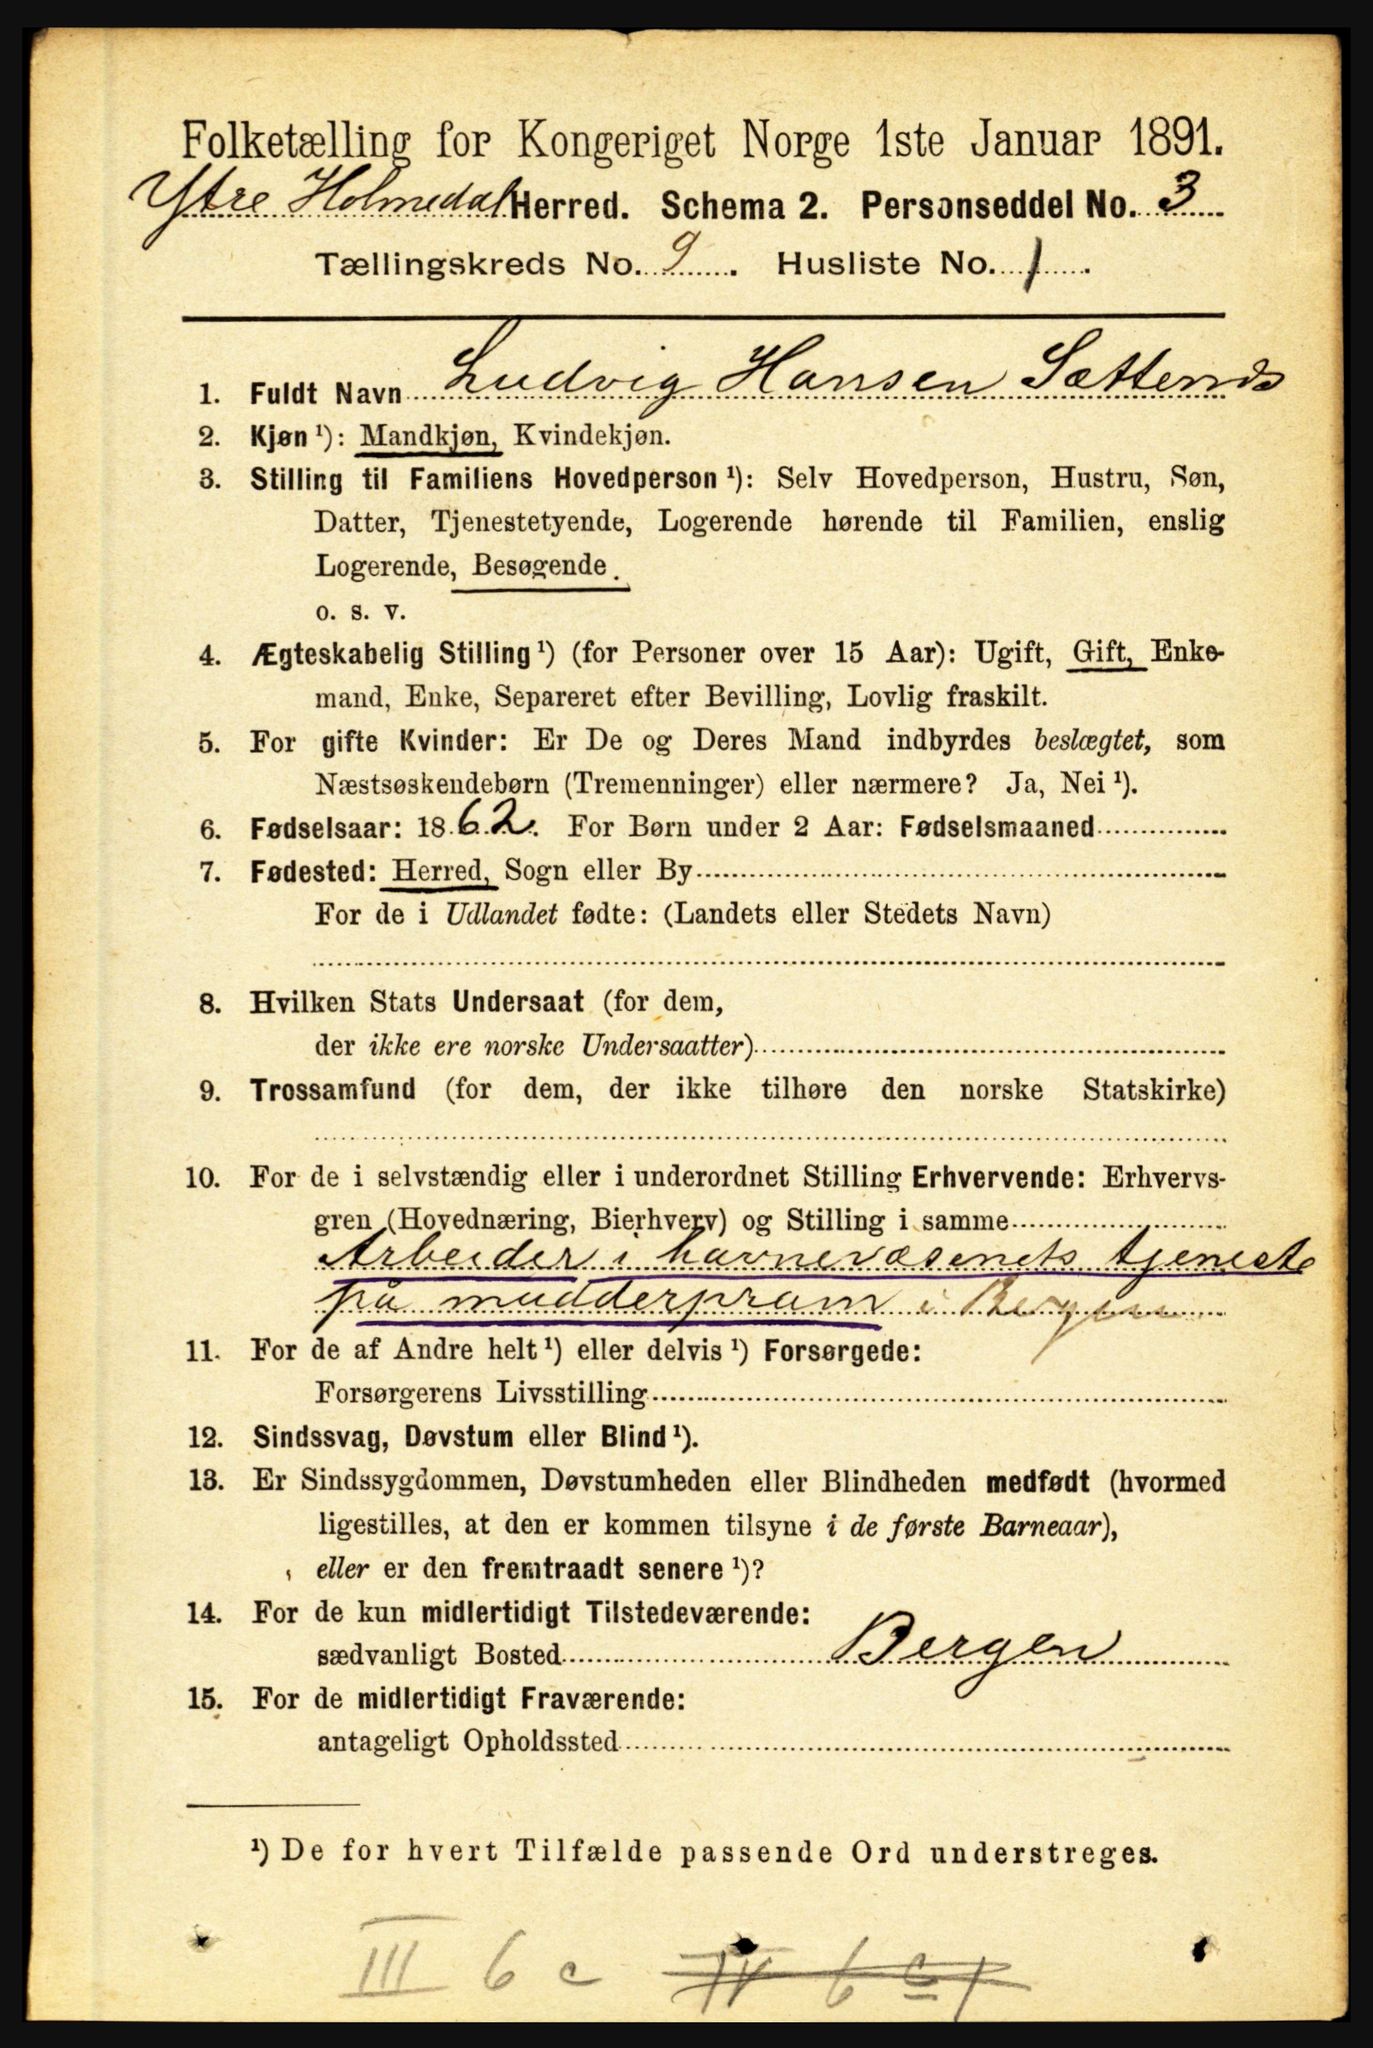 Folketælling for Kongeriget Norge 1ste Januar 1891.
Ytre Holmedal Herred. Schema 2. Personseddel No. 3
Tællingskreds No. 9. Husliste No. 1.
1. Fuldt Navn Ludvig Hansen Sættends
2. Kjøn ¹): Mandkjøn, Kvindekjøn.
3. Stilling til Familiens Hovedperson ¹): Selv Hovedperson, Hustru, Søn,
Datter, Tjenestetyende, Logerende hørende til Familien, enslig
Logerende, Besøgende.
o. s. v.
4. Ægteskabelig Stilling ¹) (for Personer over 15 Aar): Ugift, Gift, Enke-
mand, Enke, Separeret efter Bevilling, Lovlig fraskilt.
5. For gifte Kvinder: Er De og Deres Mand indbyrdes beslægtet, som
Næstsøskendebørn (Tremenninger) eller nærmere? Ja, Nei ¹).
6. Fødselsaar: 1862. For Børn under 2 Aar: Fødselsmaaned
7. Fødested: Herred, Sogn eller By
For de i Udlandet fødte: (Landets eller Stedets Navn)
8. Hvilken Stats Undersaat (for dem,
der ikke ere norske Undersaatter)
9. Trossamfund (for dem, der ikke tilhøre den norske Statskirke)
10. For de i selvstændig eller i underordnet Stilling Erhvervende: Erhvervs-
gren (Hovednæring, Bierhverv) og Stilling i samme
Arbeider i havnevæsenets tjeneste
på mudderpram i Bergen
11. For de af Andre helt ¹) eller delvis ¹) Forsørgede:
Forsørgerens Livsstilling
12. Sindssvag, Døvstum eller Blind ¹).
13. Er Sindssygdommen, Døvstumheden eller Blindheden medfødt (hvormed
ligestilles, at den er kommen tilsyne i de første Barneaar),
eller er den fremtraadt senere ¹)?
14. For de kun midlertidigt Tilstedeværende:
sædvanligt Bosted Bergen
15. For de midlertidigt Fraværende:
antageligt Opholdssted
¹) De for hvert Tilfælde passende Ord understreges.
III 6 c IV 6 c 1